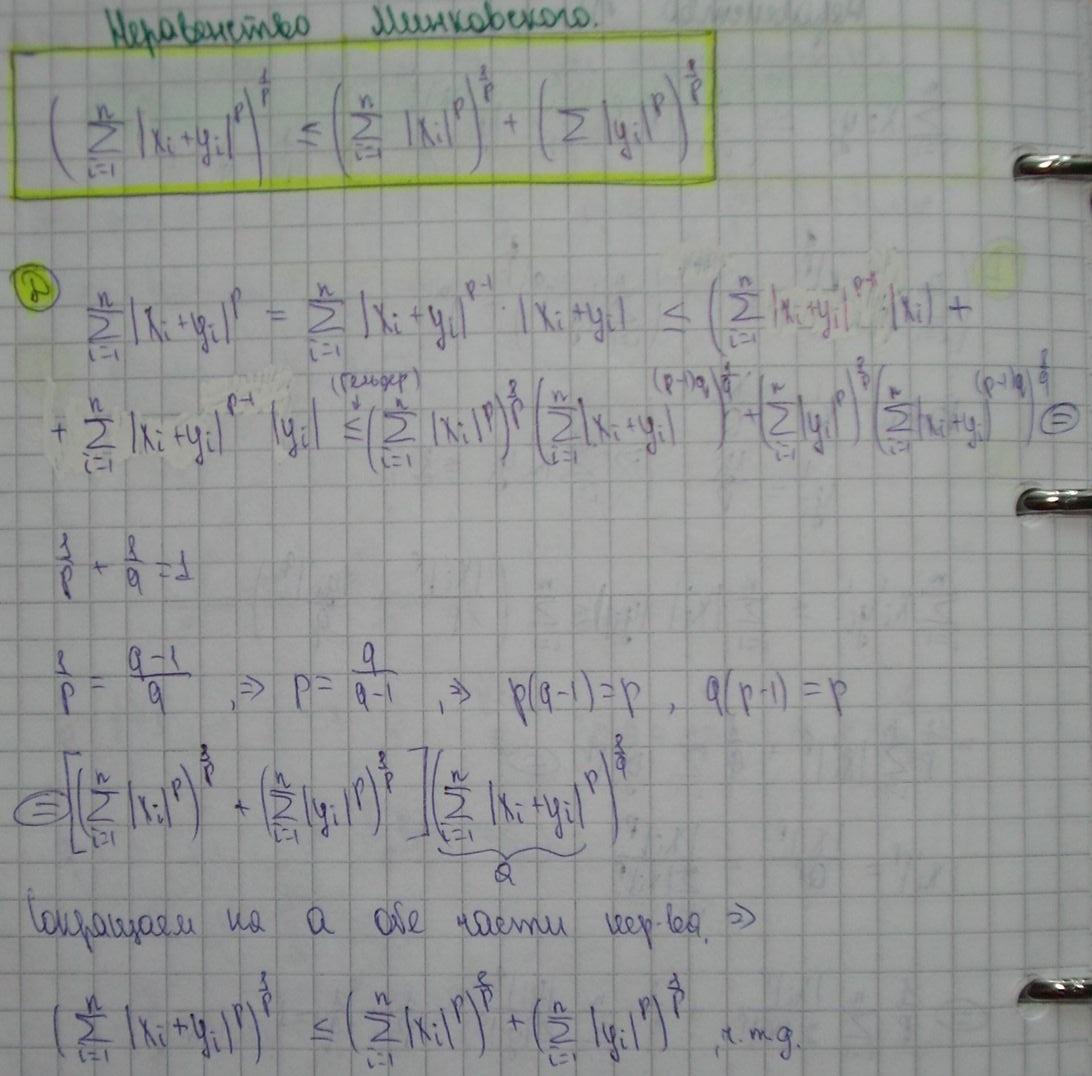 Неравенство Минковского.
(∑_{i=1}^{n} |x_i+y_i|^p)^{1/p} ≤ (∑_{i=1}^{n} |x_i|^p)^{1/p} + (∑ |y_i|^p)^{1/p}
② ∑_{i=1}^{n} |x_i+y_i|^p = ∑_{i=1}^{n} |x_i+y_i|^{p-1} · |x_i+y_i| ≤ (∑_{i=1}^{n} |x_i+y_i|^{p-1} · |x_i| +
+ ∑_{i=1}^{n} |x_i+y_i|^{p-1} |y_i| ≤ (Гельдер) (∑_{i=1}^{n} |x_i|^p)^{1/p} (∑_{i=1}^{n} |x_i+y_i|^{(p-1)q})^{1/q} + (∑_{i=1}^{n} |y_i|^p)^{1/p} (∑_{i=1}^{n} |x_i+y_i|^{(p-1)q})^{1/q} ⊜
1/p + 1/q = 1
1/p = (q-1)/q , ⇒ p = q/(q-1) , ⇒ p(q-1)=p , q(p-1)=p
⊜ [(∑_{i=1}^{n} |x_i|^p)^{1/p} + (∑_{i=1}^{n} |y_i|^p)^{1/p}] (∑_{i=1}^{n} |x_i+y_i|^p)^{1/q}
a
Сокращаем на a обе части нер-ва, ⇒
(∑_{i=1}^{n} |x_i+y_i|^p)^{1/p} ≤ (∑_{i=1}^{n} |x_i|^p)^{1/p} + (∑_{i=1}^{n} |y_i|^p)^{1/p} , ч.т.д.